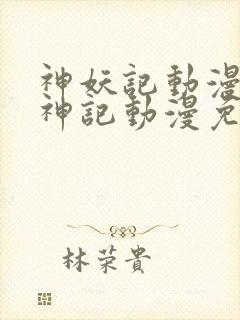 神妖記動漫
神記動漫免
林荣貴